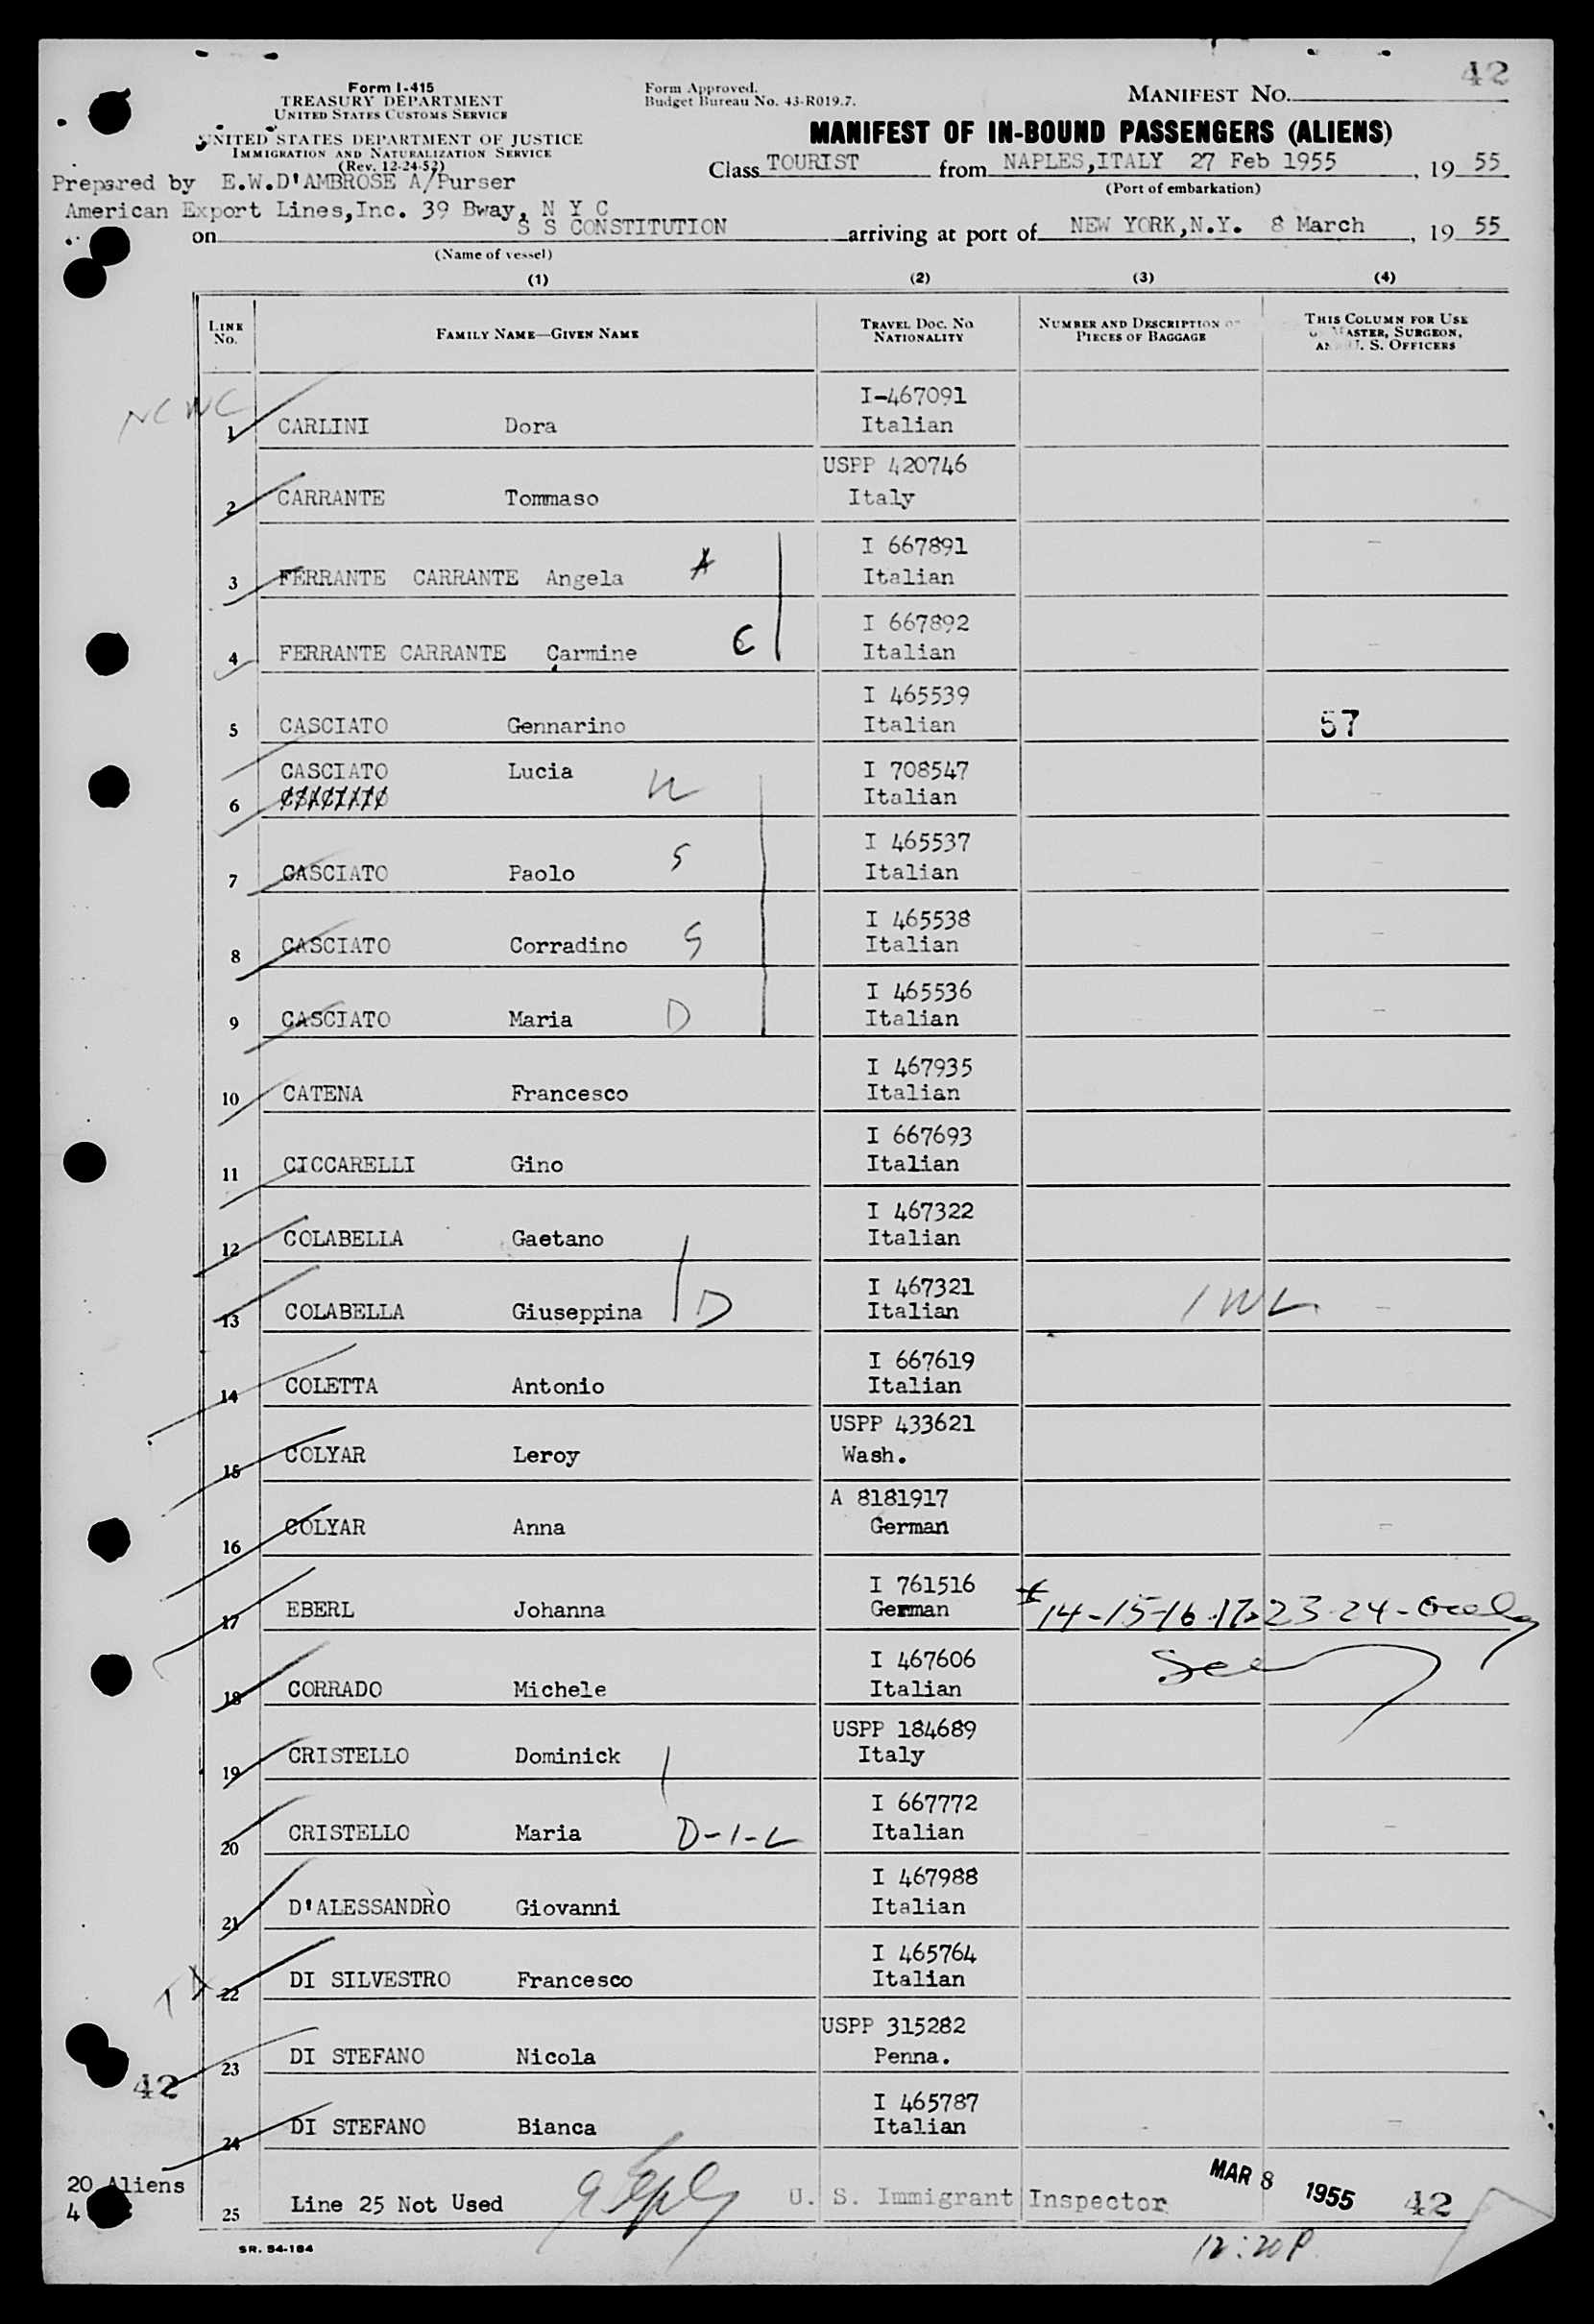 42
Form I-415
TREASURY DEPARTMENT
UNITED STATES CUSTOMS SERVICE
Form Approved.
Budget Bureau No. 43-R019.7.
MANIFEST NO.
UNITED STATES DEPARTMENT OF JUSTICE
IMMIGRATION AND NATURALIZATION SERVICE
(Rev. 12-24-52)
MANIFEST OF IN-BOUND PASSENGERS (ALIENS)
Class TOURIST from NAPLES,ITALY 27 Feb 1955, 19 55
(Port of embarkation)
Prepared by E.W.D'AMBROSE A/Purser
American Export Lines,Inc. 39 Bway, N Y C
on S S CONSTITUTION arriving at port of NEW YORK,N.Y. 8 March, 19 55
(Name of vessel)
(1) (2) (3) (4)
LINE No. FAMILY NAME—GIVEN NAME TRAVEL DOC. NO. NATIONALITY NUMBER AND DESCRIPTION OF PIECES OF BAGGAGE THIS COLUMN FOR USE OF MASTER, SURGEON, AND U. S. OFFICERS
NCWC
I-467091
1 CARLINI Dora Italian
USPP 420746
2 CARRANTE Tommaso Italy
I 667891
3 FERRANTE CARRANTE Angela A Italian
I 667892
4 FERRANTE CARRANTE Carmine C Italian
I 465539
5 CASCIATO Gennarino Italian 57
CASCIATO Lucia W I 708547
6 CSACIATO Italian
I 465537
7 CASCIATO Paolo S Italian
I 465538
8 CASCIATO Corradino S Italian
I 465536
9 CASCIATO Maria D Italian
I 467935
10 CATENA Francesco Italian
I 667693
11 CICCARELLI Gino Italian
I 467322
12 COLABELLA Gaetano Italian
I 467321
13 COLABELLA Giuseppina D Italian 1 WL
I 667619
14 COLETTA Antonio Italian
USPP 433621
15 COLYAR Leroy Wash.
A 8181917
16 COLYAR Anna German
I 761516
17 EBERL Johanna German 14-15-16-17-23-24-
I 467606
18 CORRADO Michele Italian
USPP 184689
19 CRISTELLO Dominick Italy
I 667772
20 CRISTELLO Maria D-1-L Italian
I 467988
21 D'ALESSANDRO Giovanni Italian
I 465764
22 DI SILVESTRO Francesco Italian
USPP 315282
23 DI STEFANO Nicola Penna.
42
I 465787
24 DI STEFANO Bianca Italian
20 Aliens
4
25 Line 25 Not Used U. S. Immigrant Inspector MAR 8 1955 42
SR. 54-184
12:20 P